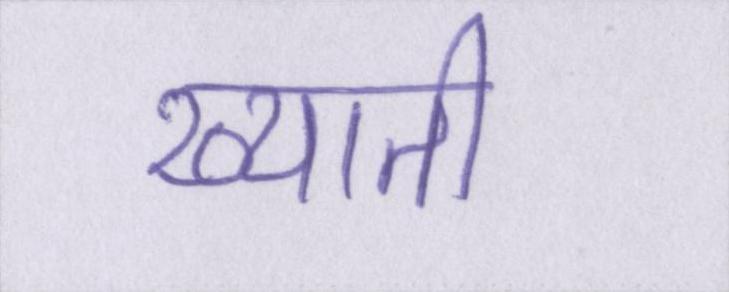 ख्याती